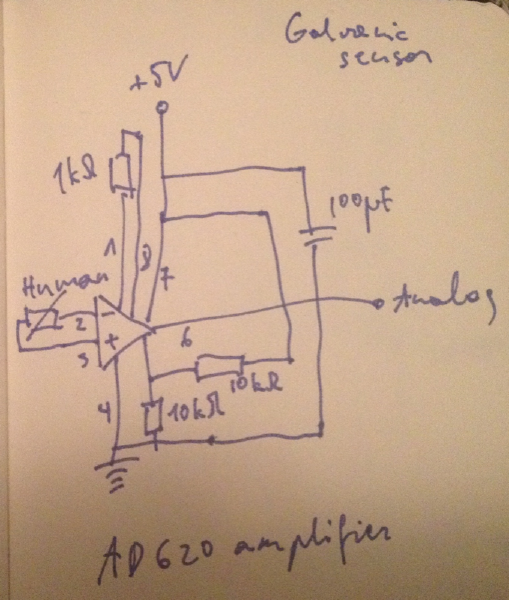 Galvanic
sensor
+5V
1kΩ
100µF
1
8
7
Human
2
3
6
Analog
10kΩ
4
10kΩ
AD620 amplifier